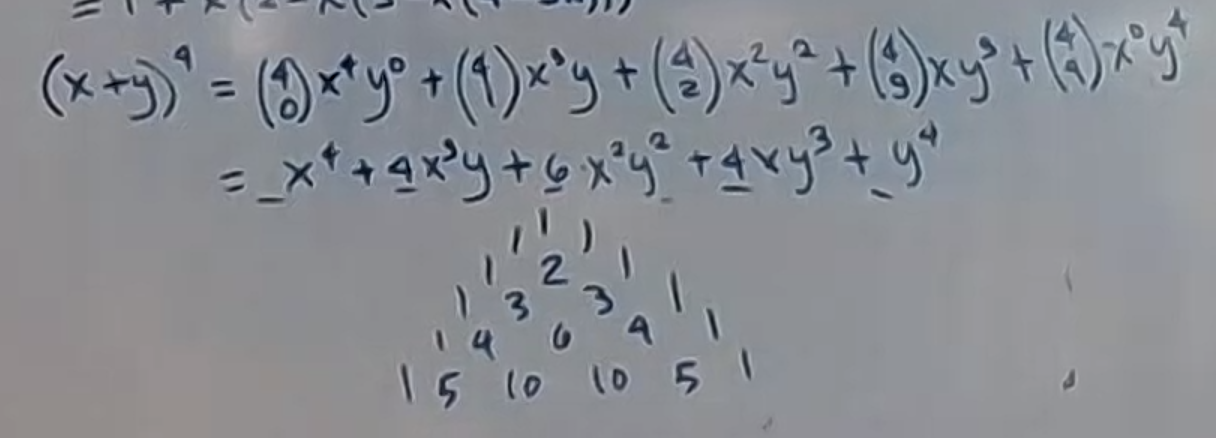 (x+y)^4 = (4 0) x^4 y^0 + (4 1) x^3 y + (4 2) x^2 y^2 + (4 3) x y^3 + (4 4) x^0 y^4
= _x^4 + 4x^3y + 6x^2y^2 + 4xy^3 + _y^4
1
1 1
1 2 1
1 3 3 1
1 4 6 4 1
1 5 10 10 5 1